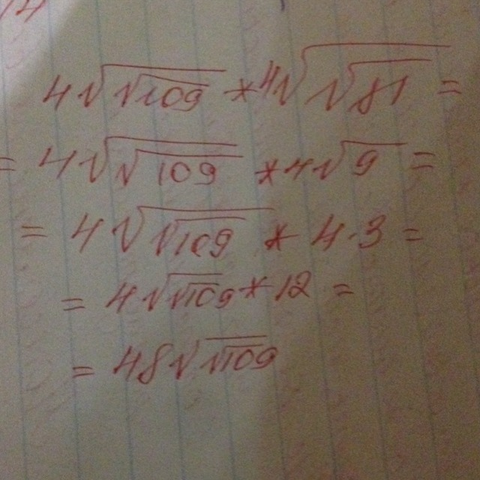 4√√109 * 4√√81 =
= 4√√109 * 4√9 =
= 4√√109 * 4·3 =
= 4√√109 * 12 =
= 48√√109